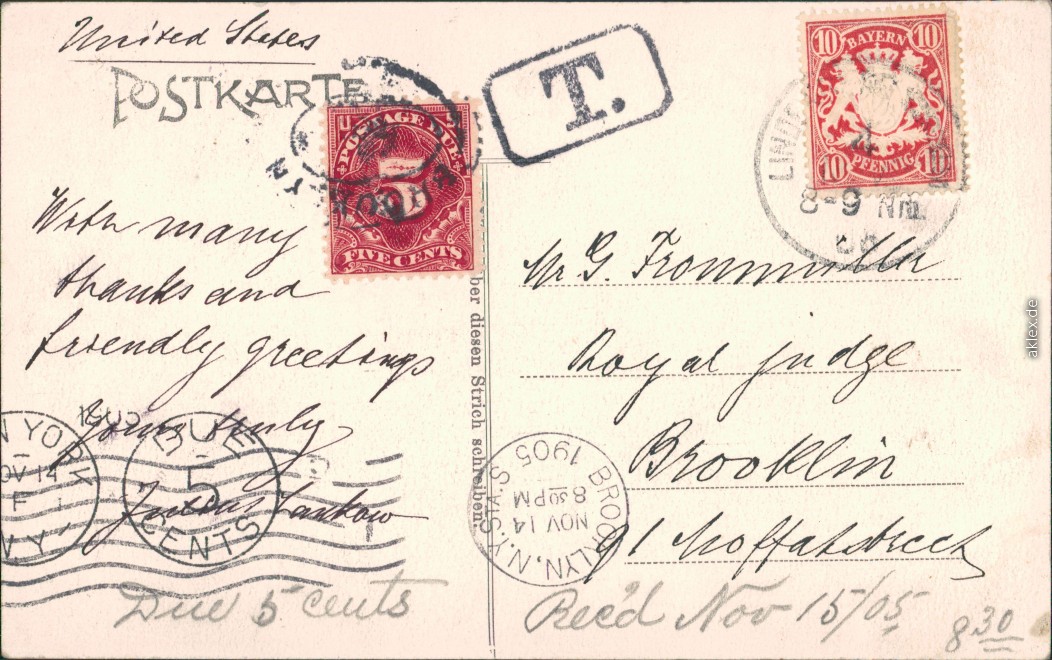 United States
POSTKARTE
T.
10 BAYERN 10
10 PFENNIG 10
8-9 Nm.
U
POSTAGE DUE
5
FIVE CENTS
With many
thanks and
friendly greetings
Yours truly
Mr G. Frommüller
Royal judge
Brooklin
91 Moffatstreet
ber diesen Strich schreiben.
N YORK
NOV 14
F
N.Y.
1905
DUE
5
CENTS
BROOKLYN, N.Y. STA. S
1905
NOV 14
8 30 PM
Due 5 cents
Rec'd Nov 15/05
8 30
aklex.de